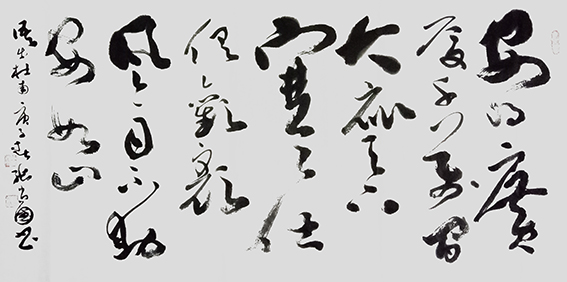 安得廣
廈千萬間
大庇天下
寒士
俱歡顏
風雨不動
安如山
杜甫 庚子